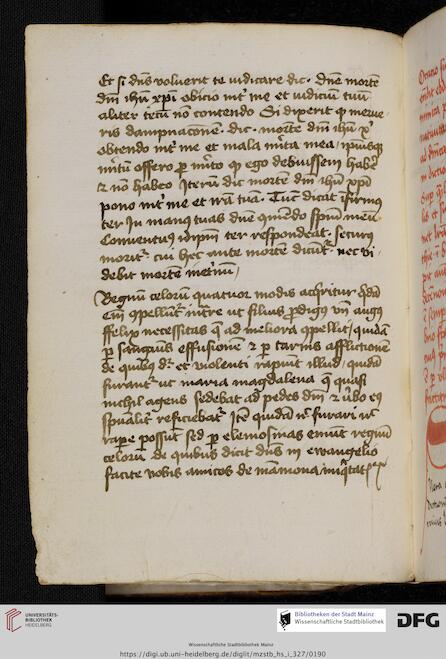 Et si dns voluerit te iudicare dic · Dne morte
dni ihu xpi obicio int' me et iudiciu tuu
aliter tecu no contendo Si dixerit q merue
ris dampnacone · dic · morte dni ihu x
obtendo int' me et mala mita mea /
mitu offero p mito q ego debuissem habe
& no habeo Iteru dic morte dni ihu xpi
pono int' me et ira tua · Tuc dicat ifirmus
ter In manus tuas dne comendo spum meu ·
Conuentus ter respondeat · securus
morit' cui hec ante morte dicunt' nec vi
debit morte
Regnum celoru quatuor modis acqritur qda
Em opellut' intre ut filius pdigus vn augus
ffelix necessitas que ad meliora opellit / quida
p sanguinis effusione & p carnis afflictione
de quibus dr et violenti rapiunt illud / quida
furant' ut maria magdalena que quasi
nichil agens sedebat ad pedes dni & vbo eius
spualit reficiebat' Ite quida nec furari nec
rape possut sed p elemosinas emut regnu
celoru de quibus dicit dns in ewangelio
facite vobis amicos de mamona iniqtat
UNIVERSITÄTS-
BIBLIOTHEK
HEIDELBERG
Bibliotheken der Stadt Mainz
Wissenschaftliche Stadtbibliothek
DFG
Wissenschaftliche Stadtbibliothek Mainz
https://digi.ub.uni-heidelberg.de/diglit/mzstb_hs_i_327/0190